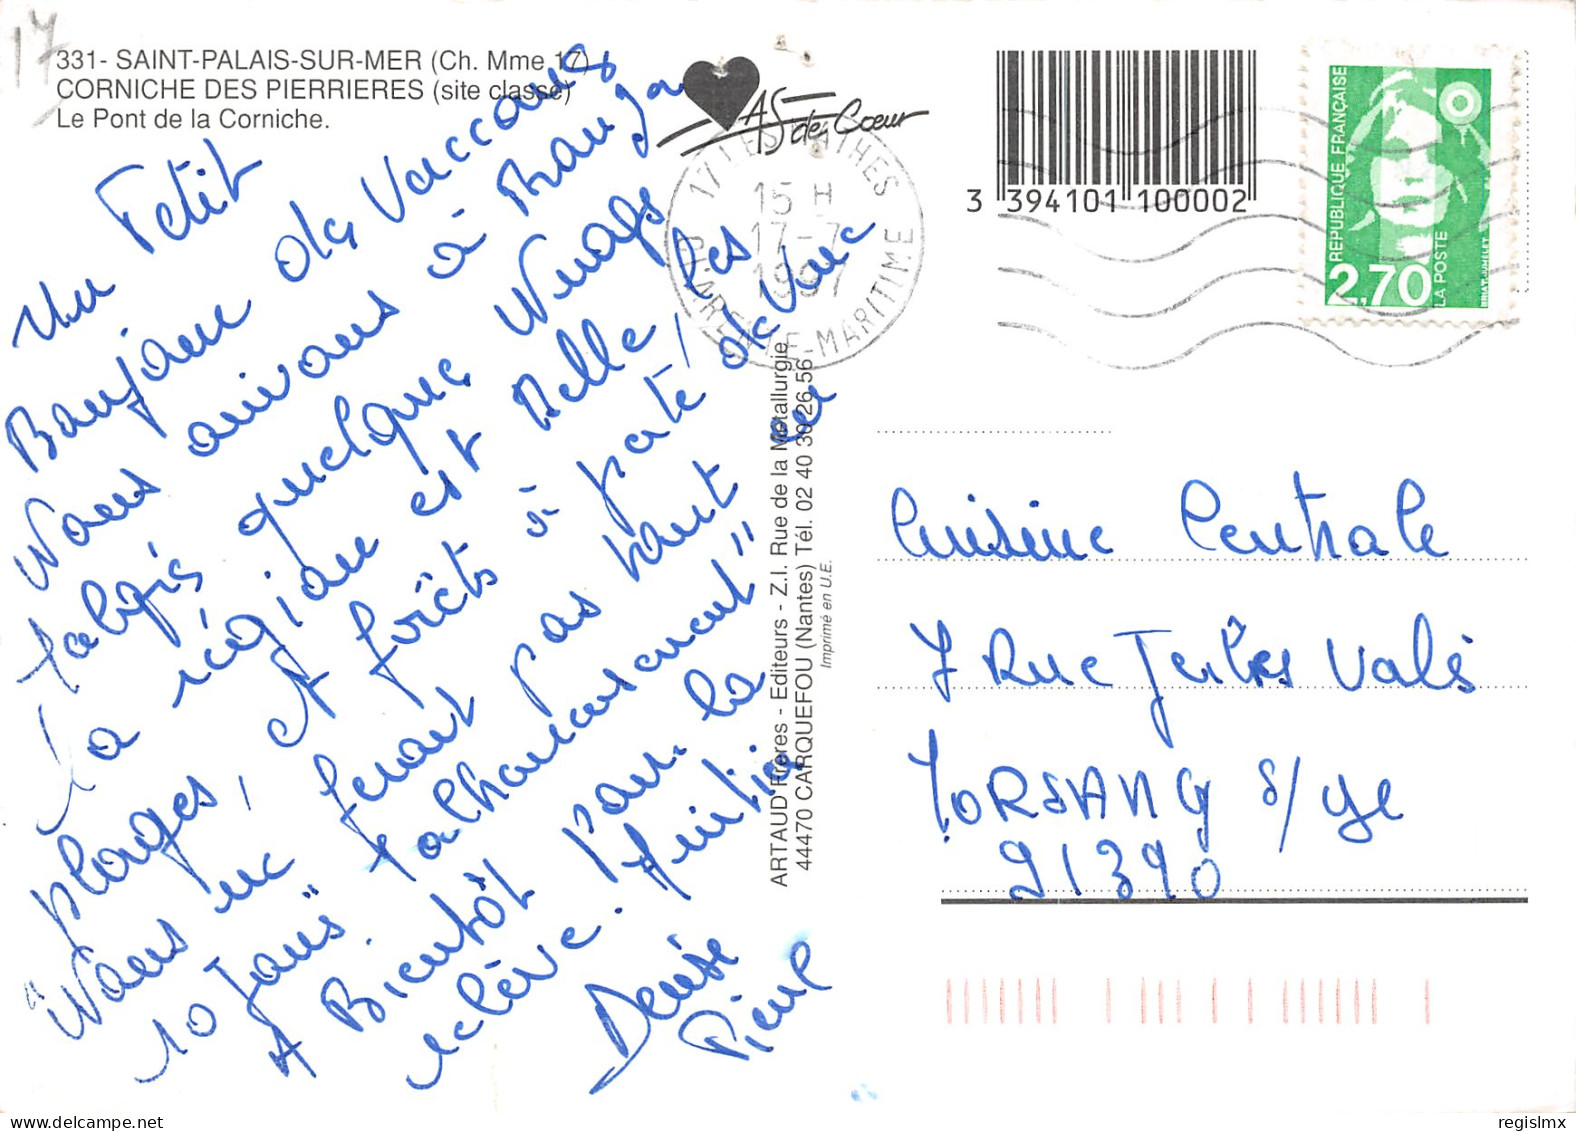 17
331- SAINT-PALAIS-SUR-MER (Ch. Mme 17)
CORNICHE DES PIERRIERES (site classé)
Le Pont de la Corniche.
AS de Coeur
17 LES MATHES
15 H
17-7
1997
CHARENTE-MARITIME
3 394101 100002
RÉPUBLIQUE FRANÇAISE
LA POSTE
2,70
BRIAT-JUMELET
Un Petit
Bonjour des Vaccans
Nous arivons à Bronza
malgrés quelque Nuage
la région est Belle, les
plages, et forêts à porté de Vue
"Nous ne feront pas haut
10 Jours" malheureusement"
A Bientôt pour la
relève.
Denise
Pierre
ARTAUD Frères - Editeurs - Z.I. Rue de la Métallurgie
44470 CARQUEFOU (Nantes) Tél. 02 40 30 26 56
Imprimé en U.E.
Cuisine Centrale
7 Rue
MORSANG S/ge
91390
regislmx